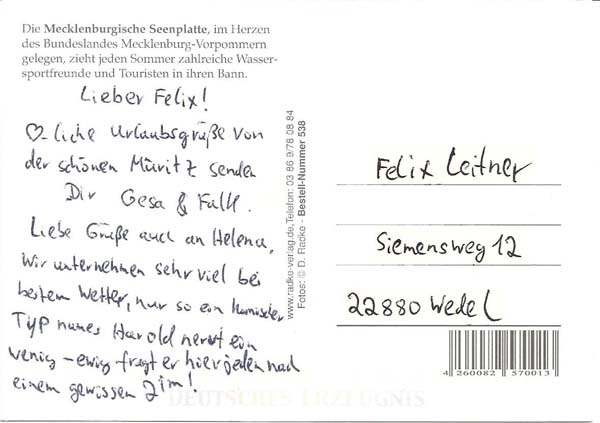 Die Mecklenburgische Seenplatte, im Herzen
des Bundeslandes Mecklenburg-Vorpommern
gelegen, zieht jeden Sommer zahlreiche Wasser-
sportfreunde und Touristen in ihren Bann.
Lieber Felix!
♡-liche Urlaubsgrüße von
der schönen Müritz senden
Dir Gesa & Falk.
Liebe Grüße auch an Helena.
Wir unternehmen sehr viel bei
bestem Wetter, nur so ein komischer
Typ names Harold nervt ein
wenig – ewig fragt er hier jeden nach
einem gewissen Jim!
www.radke-verlag.de, Telefon: 03 86 9/78 08 84
Fotos: © D. Radke - Bestell-Nummer 538
Felix Leitner
Siemensweg 12
22880 Wedel
4 260082 570013
DEUTSCHES ERZEUGNIS